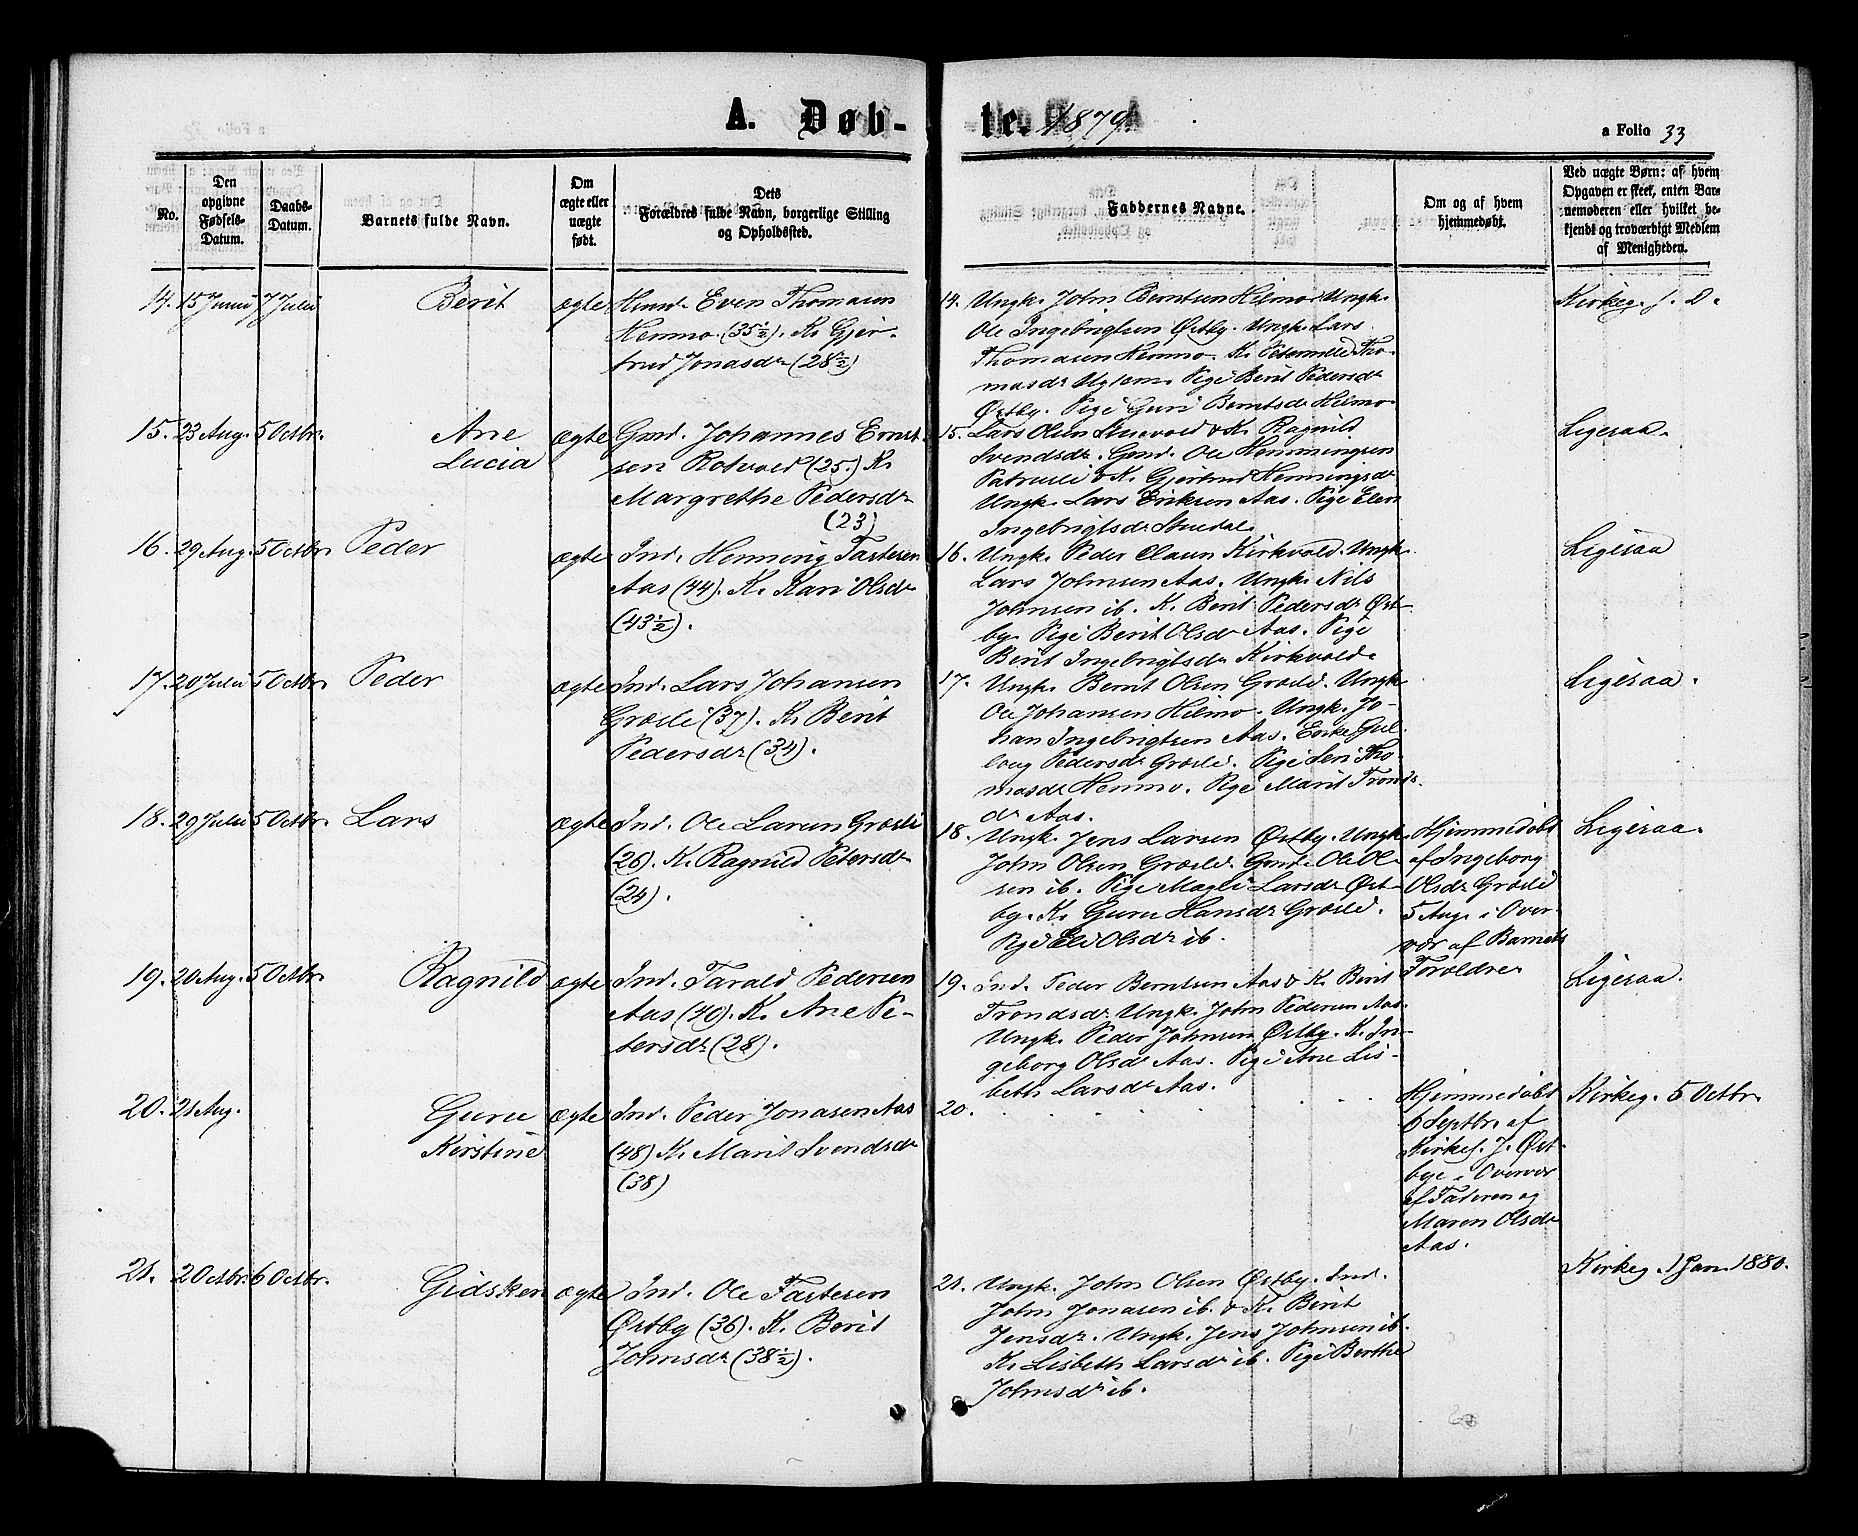 A. Døb-te. 1879.
a Folio 33
No.
Den opgivne Fødsels-Datum.
Daabs-Datum.
Barnets fulde Navn.
Om ægte eller uægte født.
Dets Forældres fulde Navn, borgerlige Stilling og Opholdssted.
Faddernes Navne.
Om og af hvem hjemmedøbt.
Ved uægte Børn: af hvem Opgaven er skeet, enten Barnemoderen eller hvilket bekjendt og troværdigt Medlem af Menigheden.
14. 15 Juni 7 Juli Berit ægte
Even Thomasen
Hemmo (35½). K. Gjer-
trud Jonasdr (28½)
14. Ungk. John Berntsen Hilmo Ungk.
Ole Ingebrigtsen Østby. Ungk. Lars
Thomasen Hemmo. K. Peternille Tho-
masdr Uglem. Pige Berit Pedersdr
Østby. Pige Guri Berntsdr Hilmo
Kirkeg. f. D.
15. 23 Aug. 5 Octbr. Ane
Lucia
ægte
Gmd. Johannes Ernst-
sen Rotvold (25.) K.
Margrethe Pedersdr
(23)
15. Lars Olsen Stuevold & K. Ragnild
Svendsdr. Gmd. Ole Hemmingsen
Patrusli & K. Gjertrud Henningsdr
Ungk. Lars Eriksen Aas. Pige Elen
Ingebrigtsdr Stuedal.
Ligesaa.
16. 29 Aug. 5 Octbr. Peder
ægte
Ind. Henning Tastesen
Aas (44). K. Kari Olsdr
(43½).
16. Ungk. Peder Olsen Kirkvold. Ungk.
Lars Johnsen Aas. Ungk. Nils
Johnsen ib. K. Berit Pedersdr Øst-
by. Pige Berit Olsdr Aas. Pige
Berit Ingebrigtsdr Kirkvold.
Ligesaa
17. 20 Juli 5 Octbr. Peder
ægte
Ind. Lars Johansen
Græsli (37). K. Berit
Pedersdr (34).
17. Ungk. Bernt Olsen Græsli. Ungk.
Ole Johansen Hilmo. Ungk. Jo-
han Ingebrigtsen Aas. Enke Gul-
loug Pedersdr Græsli. Pige Seri Tho-
masdr Hemmo. Pige Marit Tronds-
dr Aas.
Ligesaa.
18. 29 Juli 5 Octbr. Lars
ægte
Ind. Ole Larsen Græsli
(26). K. Ragnild Petersdr
(24).
18. Ungk. Jens Larsen Østby. Ungk.
John Olsen Græsli. Gmd. Ole Ol-
sen ib. Pige Magli Larsdr Øst-
by. K. Guru Hansdr Græsli.
Pige Eli Olsdr ib.
Hjemmedøbt
af Ingeborg
Olsdr Græsli
5 Aug. i Over-
vær af Barnets
Forældre.
Ligesaa.
19. 20 Aug. 5 Octbr. Ragnild
ægte
Ind. Tarald Pedersen
Aas (40). K. Ane Pe-
tersdr (28).
19. Ind. Peder Berntsen Aas & K. Berit
Trondsdr Ungk. John Pedersen Aas.
Ungk. Peder Johnsen Østby. K. In-
geborg Olsdr Aas. Pige Ane Lis-
beth Larsdr Aas.
Ligesaa.
20. 21 Aug. Guru
Kirstine
ægte
Ind. Peder Jonasen Aas
(48) K. Marit Svendsdr
(38)
20.
Hjemmedøbt
6 Septbr. af
Kirkes. J. Øst-
bye i Overvær
af Faderen og
Maren Olsdr
Aas.
Kirkeg. 5 Octbr.
21. 2 Octbr. 6 Octbr. Gidsken
ægte
Ind. Ole Tastesen
Østby (36). K. Berit
Johnsdr (38½).
21. Ungk. John Olsen Østby. Ind.
John Jonasen ib. & K. Berit
Jensdr. Ungk. Jens Johnsen ib.
K. Lisbeth Larsdr ib. Pige Berthe
Johnsdr ib.
Kirkeg. 1 Jan. 1880.